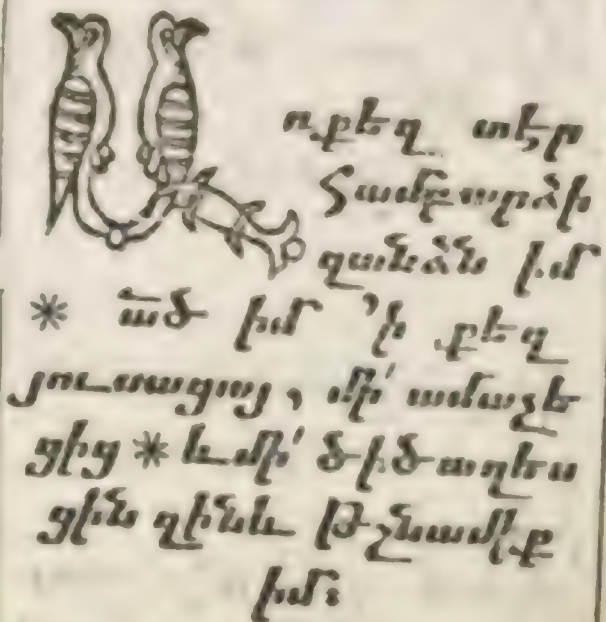 Առ քեզ տէր
համբարձի
զանձն իմ
* ած իմ ՚ի քեզ
յուսացայ, մի՛ ամաչե
ցից * և մի՛ ծիծաղես
ցին զինև թշնամիք
իմ։